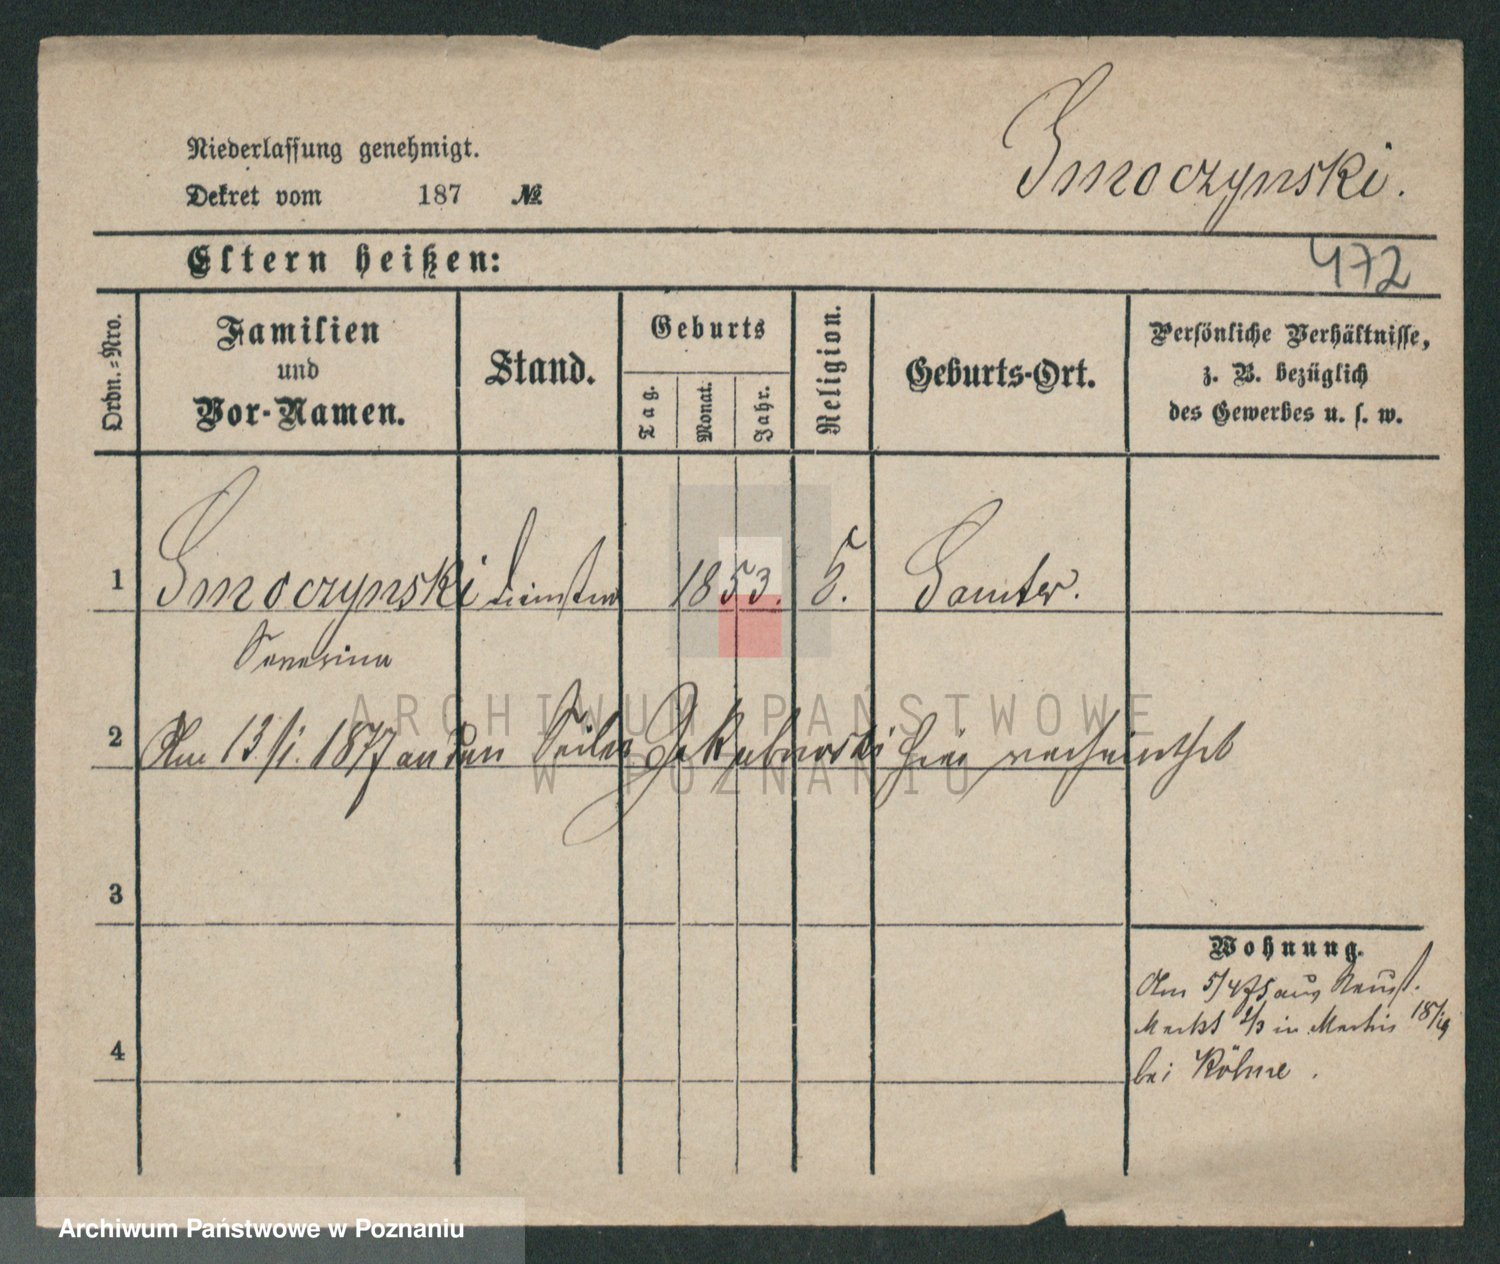 Niederlassung genehmigt.
Dekret vom 187 №
Smoczynski.
Eltern heißen:
472
Ordn.-Nro.
Familien
und
Vor-Namen.
Stand.
Geburts
Tag.
Monat.
Jahr.
Religion.
Geburts-Ort.
Persönliche Verhältnisse,
z. B. bezüglich
des Gewerbes u. s. w.
1 Smoczynski 1853. Samter.
Severina
2 Am 13/1. 1877 an den Seiler Jakubowski hier verheirathet
3
Wohnung.
Am 5/4 75 aus Neust.
Markt 1/3 in Martin 18/19
bei Köhne.
4
ARCHIWUM PAŃSTWOWE
W POZNANIU
Archiwum Państwowe w Poznaniu